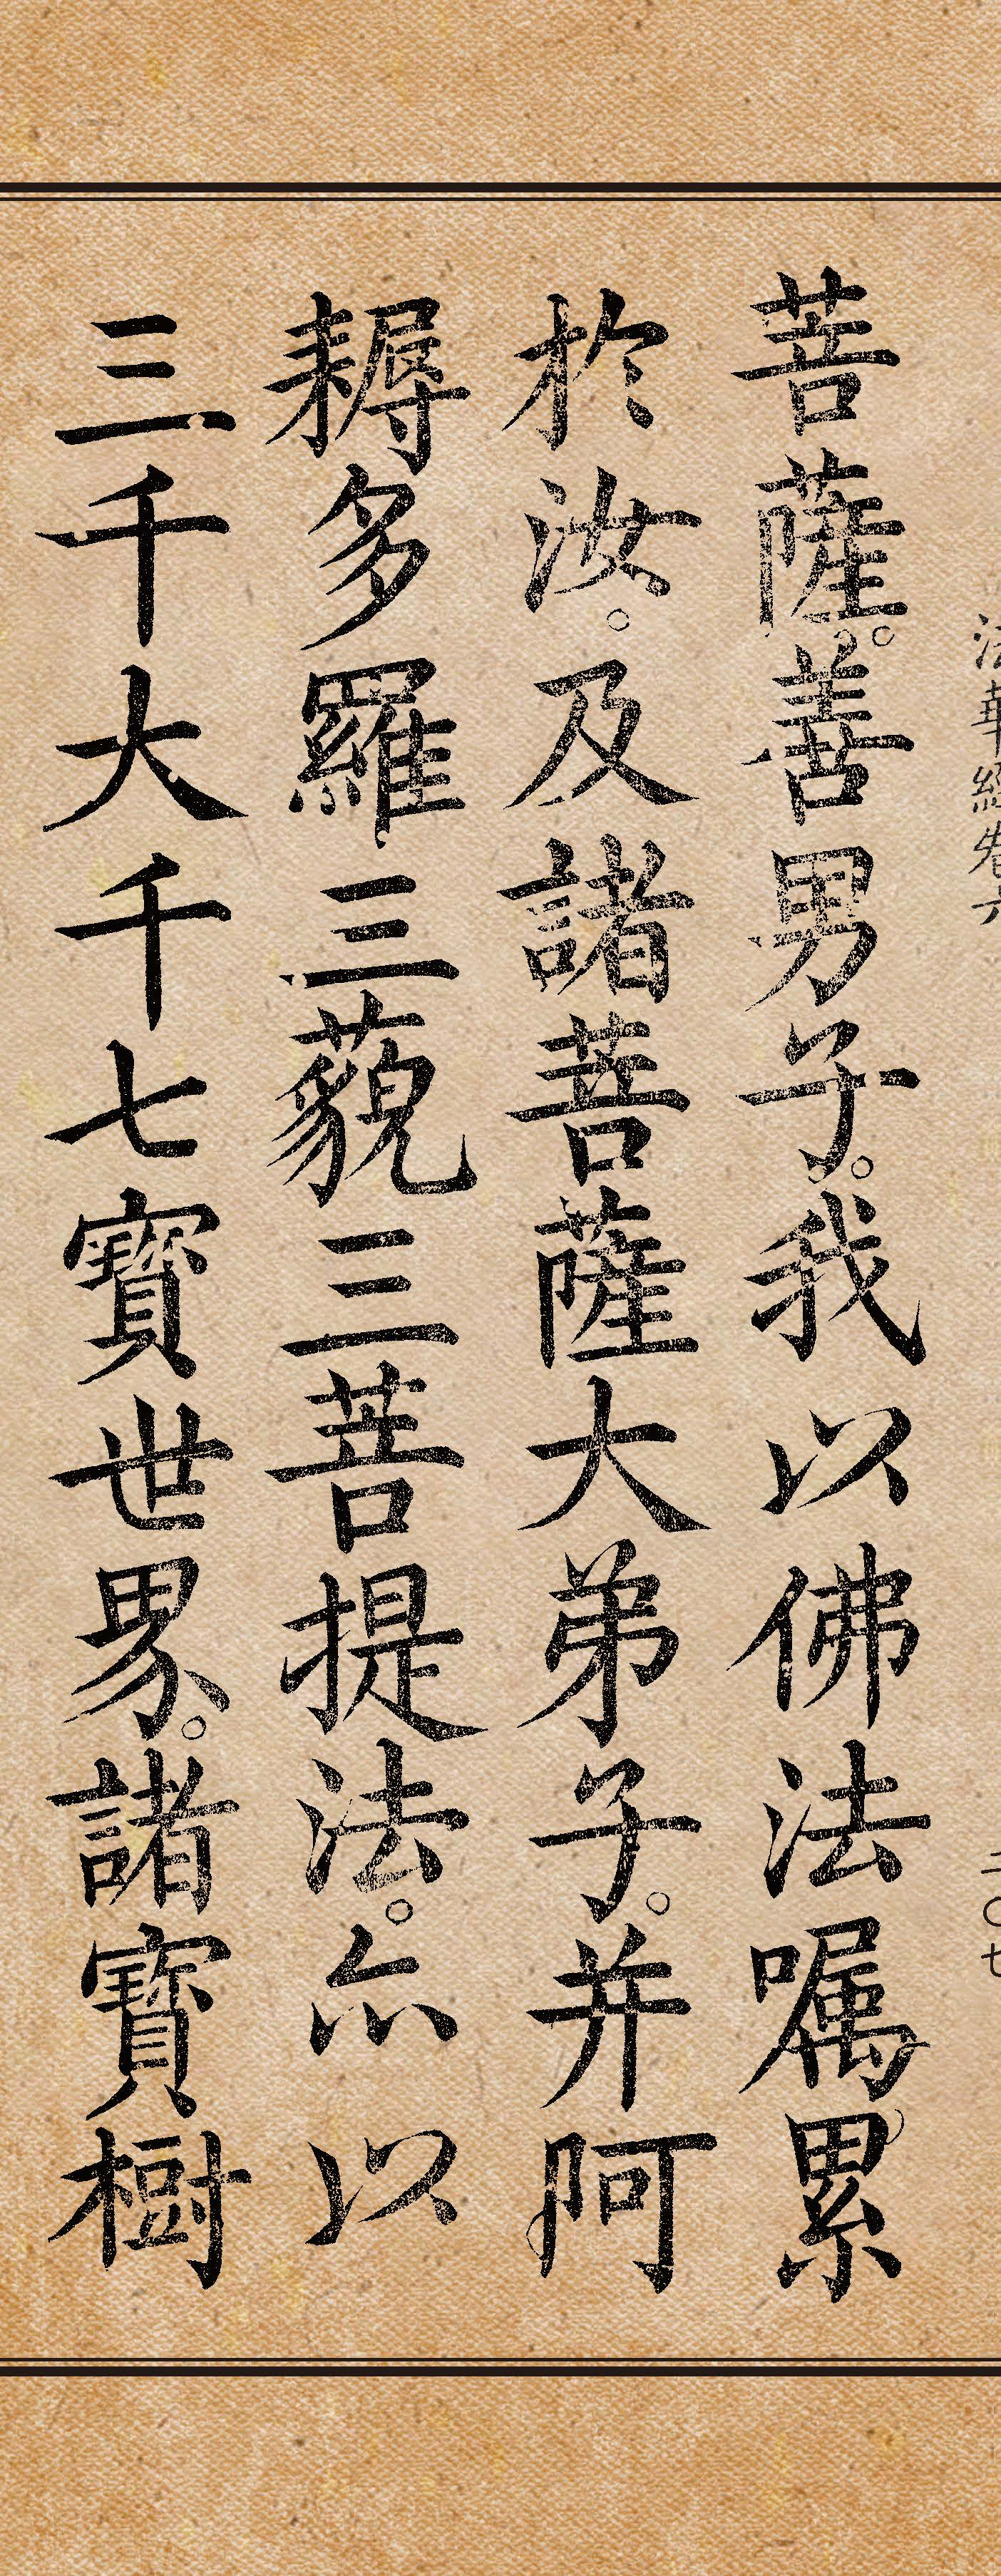 法華經卷六
二〇七
菩薩。善男子。我以佛法嘱累
於汝。及諸菩薩大弟子。并阿
耨多羅三藐三菩提法。亦以
三千大千七寶世界。諸寶樹